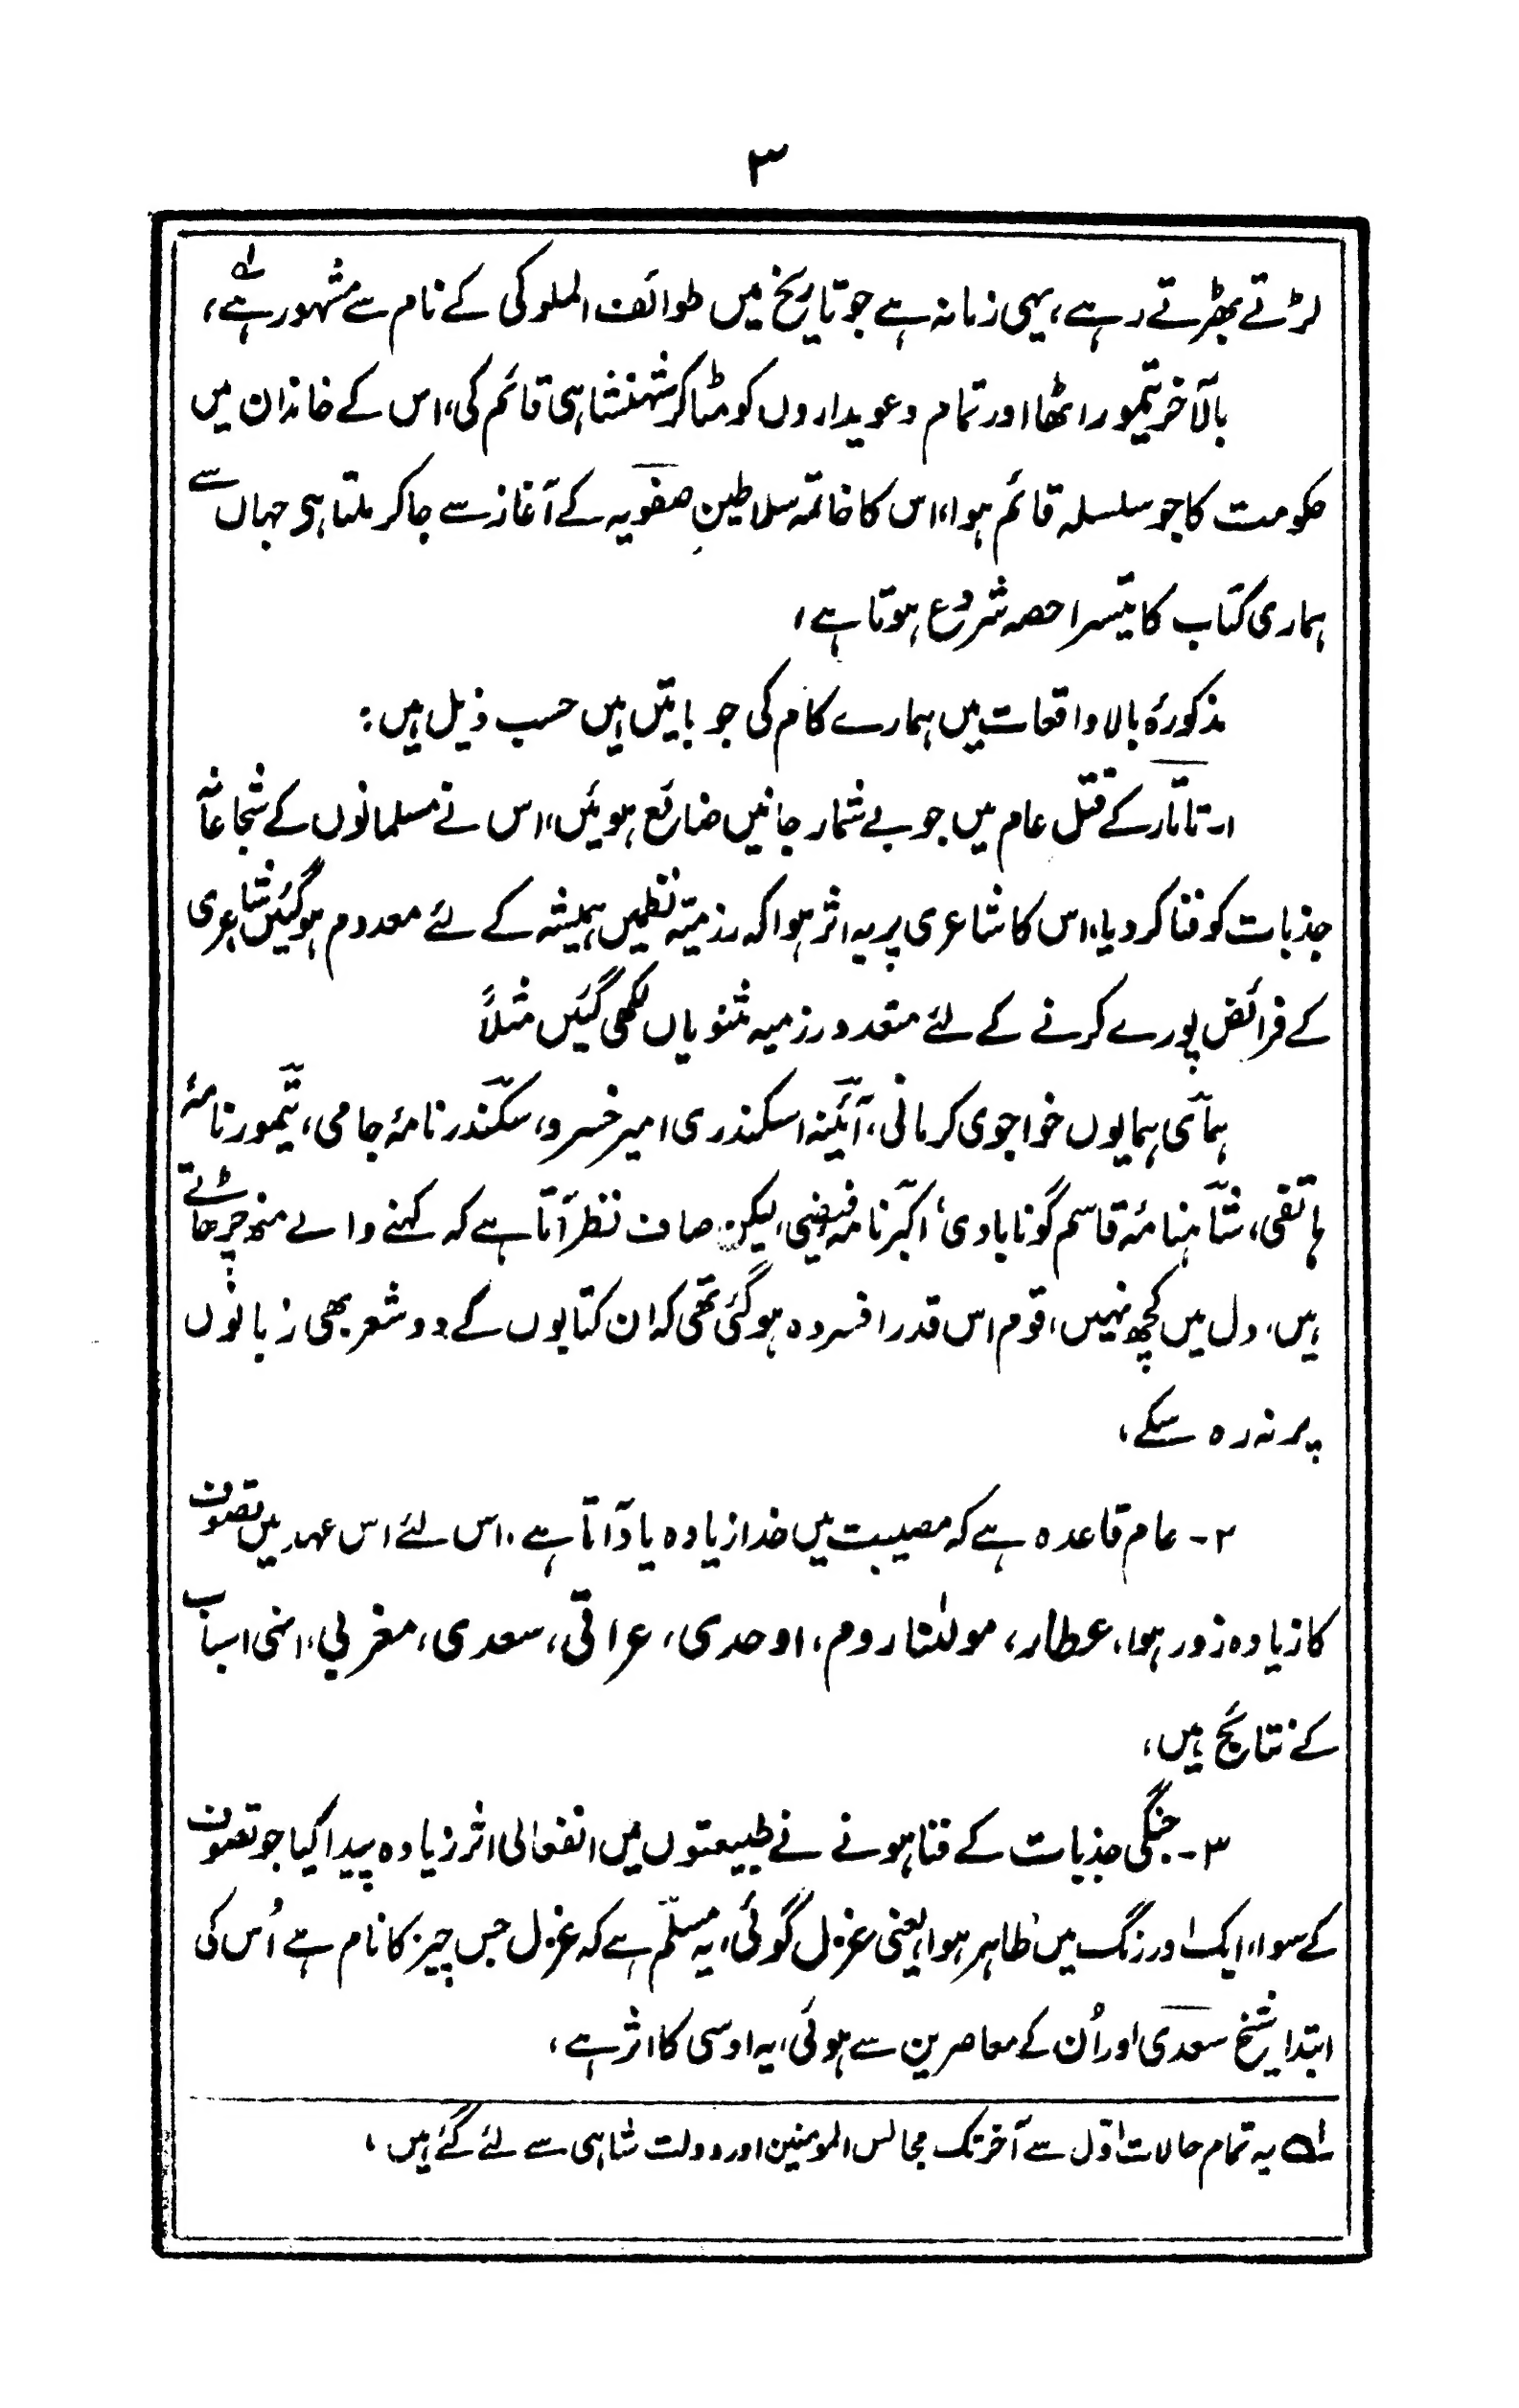 ۳
لڑتے بھڑتے رہے، یہی زمانہ ہے جو تاریخ میں طوائف الملوکی کے نام سے مشہور ہے؂۱،
بالآخر تیمور اٹھا اور تمام دعویداروں کو مٹا کر شہنشاہی قائم کی، اس کے خاندان میں
حکومت کا جو سلسلہ قائم ہوا، اس کا خاتمہ سلاطینِ صفویہ کے آغاز سے جا کر ملتا ہی جہاں سے
ہماری کتاب کا تیسرا حصہ شروع ہوتا ہے،
مذکورۂ بالا واقعات میں ہمارے کام کی جو باتیں ہیں حسب ذیل ہیں:
۱۔ تاتار کے قتل عام میں جو بے شمار جانیں ضائع ہوئیں، اس نے مسلمانوں کے شجاعانہ
جذبات کو فنا کر دیا، اس کا شاعری پر یہ اثر ہوا کہ رزمیہ نظمیں ہمیشہ کے لئے معدوم ہو گئیں شاعری
کے فرائض پورے کرنے کے لئے متعدد رزمیہ مثنویاں لکھی گئیں مثلاً
ہمای ہمایوں خواجوی کرمانی، آئینۂ اسکندری امیر خسرو، سکندر نامۂ جامی، تیمور نامۂ
ہاتفی، شاہنامۂ قاسم گونابادی، اکبر نامہ فیضی، لیکن صاف نظر آتا ہے کہ کہنے والے منھ چڑھاتے
ہیں، دل میں کچھ نہیں، قوم اس قدر افسردہ ہو گئی تھی کہ ان کتابوں کے دو شعر بھی زبانوں
پر نہ رہ سکے،
۲۔ عام قاعدہ ہے کہ مصیبت میں خدا زیادہ یاد آتا ہے، اس لئے اس عہد میں تصوف
کا زیادہ زور ہوا، عطار، مولٰنا روم، اوحدی، عراقی، سعدی، مغربی، انہی اسباب
کے نتائج ہیں،
۳۔ جنگی جذبات کے فنا ہونے نے طبیعتوں میں انفعالی اثر زیادہ پیدا کیا جو تصوف
کے سوا، ایک اور رنگ میں ظاہر ہوا، یعنی غزل گوئی، یہ مسلّم ہے کہ غزل جس چیز کا نام ہے اُس کی
ابتدا شیخ سعدی اور اُن کے معاصرین سے ہوئی، یہ اوسی کا اثر ہے،
؂۱ یہ تمام حالات اوّل سے آخر تک مجالس المومنین اور دولت شاہی سے لئے گئے ہیں،